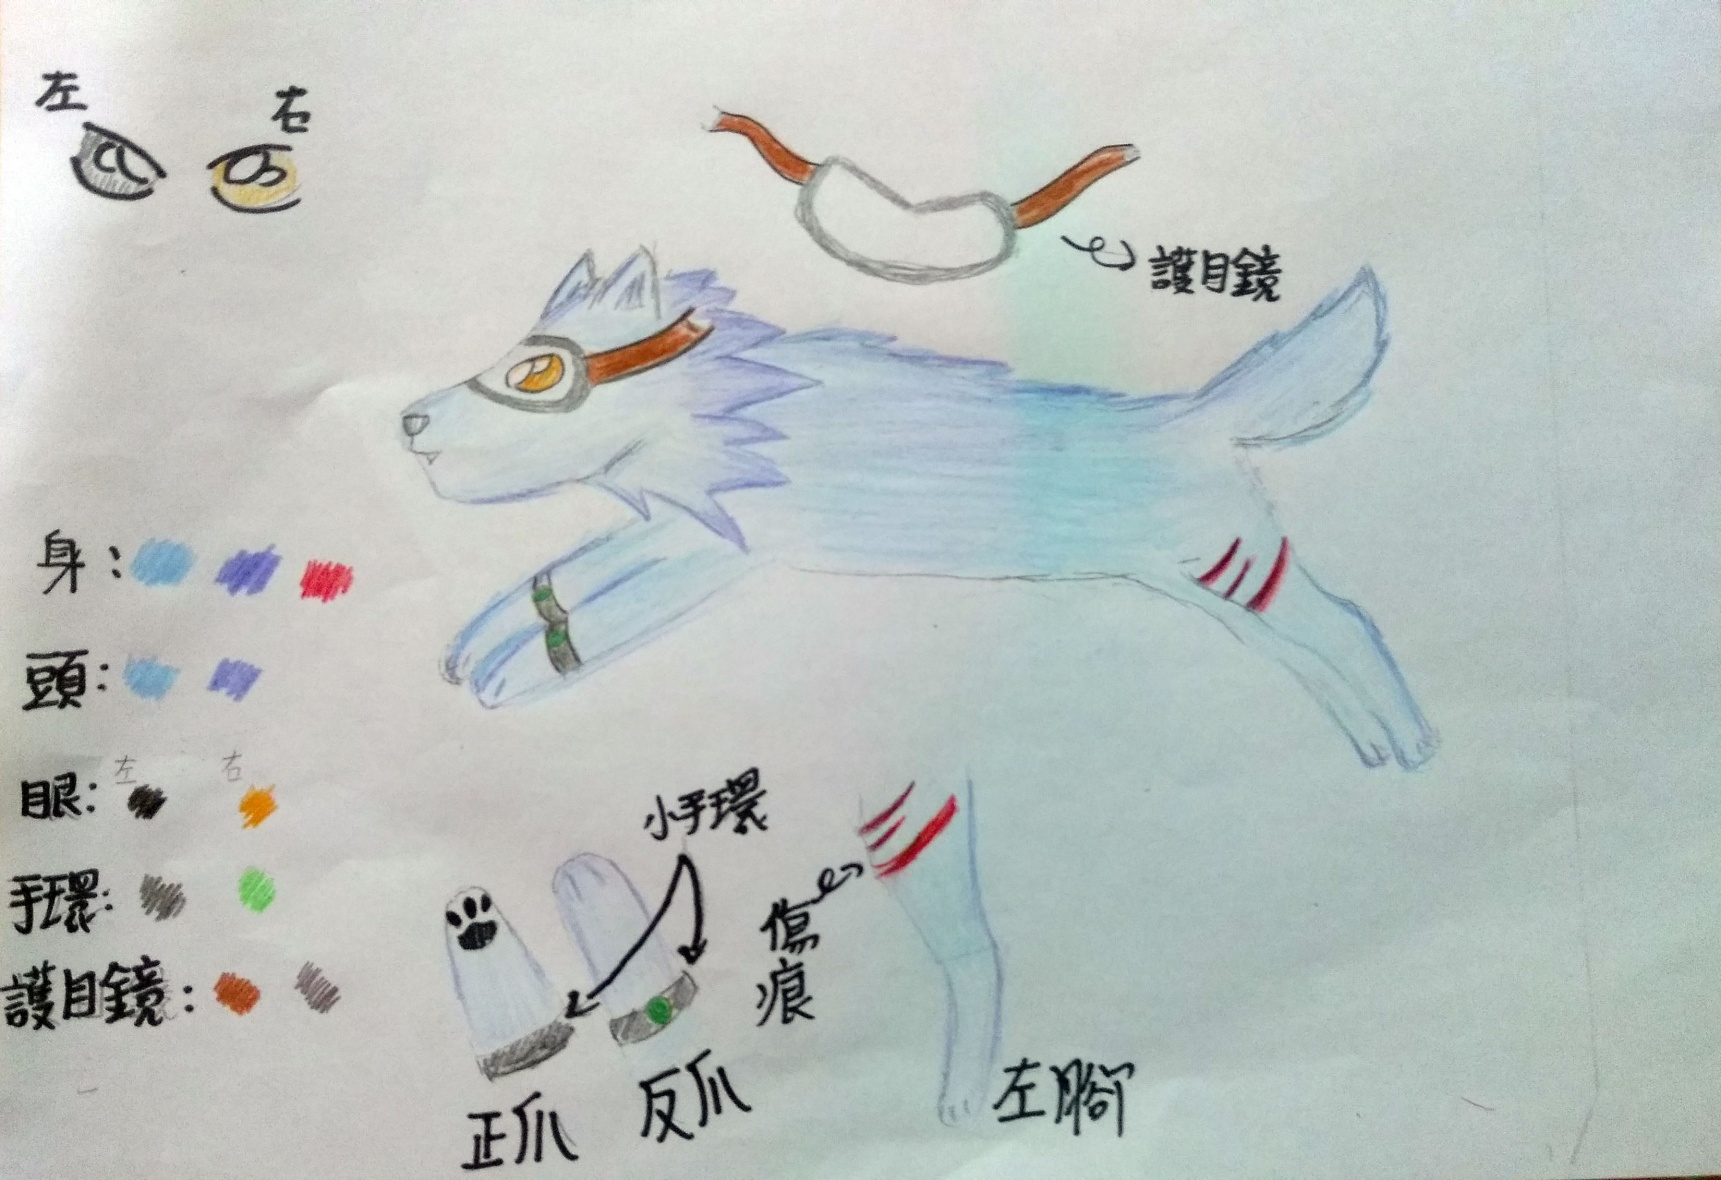 左
右
護目鏡
身:
頭:
左 右
眼:
手環:
護目鏡:
小手環
傷痕
正爪
反爪
左腳